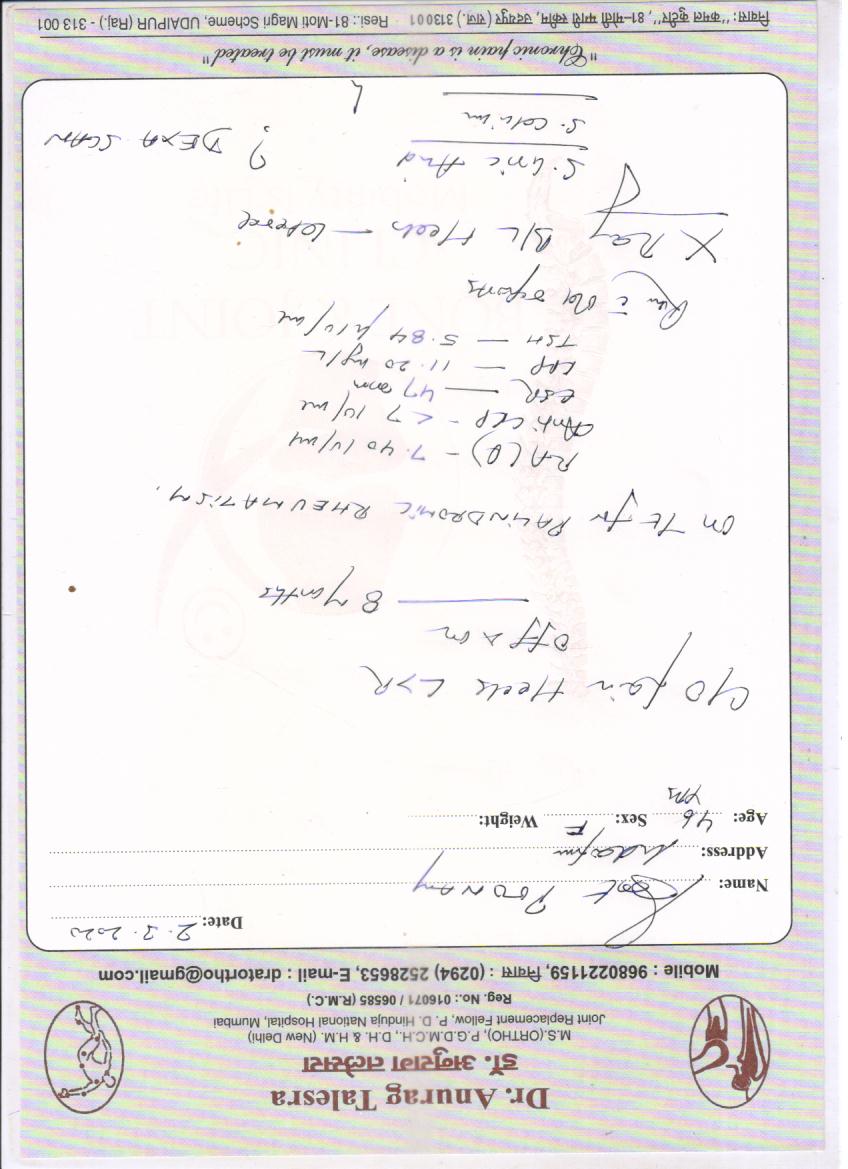 Dr. Anurag Talesra
डॉ. अनुराग तलेसरा
M.S.(ORTHO), P.G.D.M.C.H., D.H. & H.M. (New Delhi)
Joint Replacement Fellow, P. D. Hinduja National Hospital, Mumbai
Reg. No.: 016071 / 06585 (R.M.C.)
Mobile : 9680221159, निवास : (0294) 2528653, E-mail : dratortho@gmail.com
Date: 2.3.2020
Name: Smt Poonam
Address: Udaipur
Age: 46 yrs Sex: F Weight:
C/O Pain Heels L>R
off & on
8 Months
On Tt for PALINDROMIC RHEUMATISM.
RA(Q) - 7.40 IU/ml
Anti CCP - <7 IU/ml
ESR — 47 mm
CRP — 11.20 mg/L
TSH — 5.84 µIU/ml
Rev c̄ old reports
X Ray B/L Heels — lateral
S. Uric Acid
S. Calcium
? DEXA SCAN
"Chronic pain is a disease, it must be treated"
निवास: "कमल कुटीर", 81-मोती मगरी स्कीम, उदयपुर (राज.) 313001 Resi.: 81-Moti Magri Scheme, UDAIPUR (Raj.) - 313 001